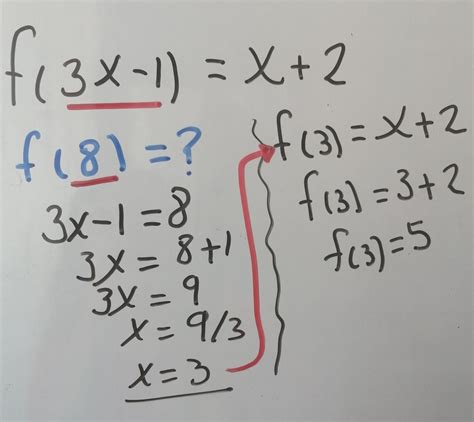 f(3x-1) = x+2
f(8) = ?
3x-1=8
3x = 8+1
3x = 9
x = 9/3
x = 3
f(3) = x+2
f(3) = 3+2
f(3) = 5